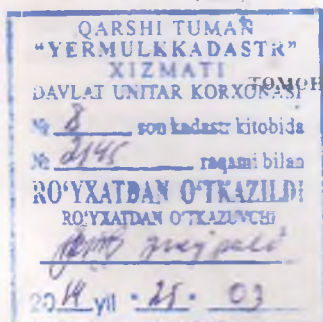 QARSHI TUMAN
“YERMULKKADASTR”
XIZMATI
ТОМОН
DAVLAT UNITAR KORXONASI
№ 8 son kadastr kitobida
№ 2145 raqami bilan
RO‘YXATDAN O‘TKAZILDI
RO‘YXATDAN O‘TKAZUVCHI
2014 yil • 25 • 03